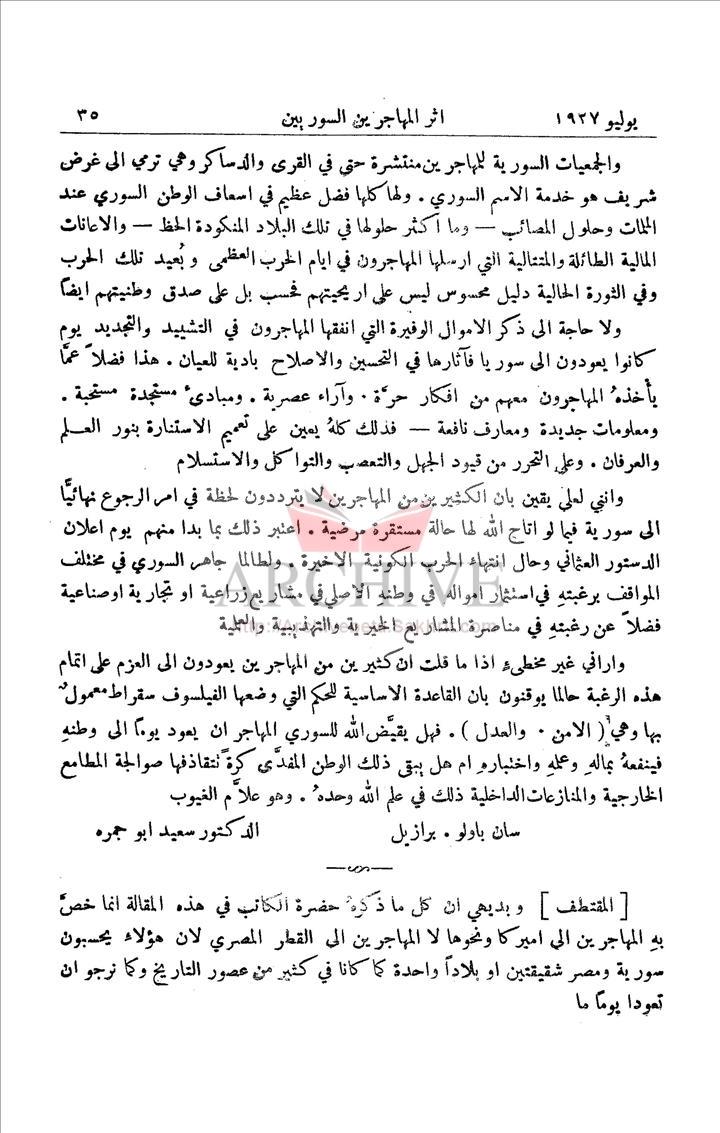 يوليو ١٩٢٧ اثر المهاجرين السوريين ٣٥
والجمعيات السورية للمهاجرين منتشرة حتى في القرى والدساكر وهي ترمي الى غرض
شريف هو خدمة الاسم السوري . ولها كلها فضل عظيم في اسعاف الوطن السوري عند
الملمات وحلول المصائب — وما اكثر حلولها في تلك البلاد المنكودة الحظ — والاعانات
المالية الطائلة والمتتالية التي ارسلها المهاجرون في ايام الحرب العظمى وبُعيد تلك الحرب
وفي الثورة الحالية دليل محسوس ليس على اريحيتهم فحسب بل على صدق وطنيتهم ايضاً
ولا حاجة الى ذكر الاموال الوفيرة التي انفقها المهاجرون في التشييد والتجديد يوم
كانوا يعودون الى سوريا فآثارها في التحسين والاصلاح بادية للعيان . هذا فضلاً عمَّا
يأخذهُ المهاجرون معهم من افكار حرَّة . وآراء عصرية . ومبادئ مستجدة مستحبة .
ومعلومات جديدة ومعارف نافعة — فذلك كلهُ يعين على تعميم الاستنارة بنور العلم
والعرفان . وعلى التحرر من قيود الجهل والتعصب والتواكل والاستسلام
وانني لعلى يقين بان الكثيرين من المهاجرين لا يترددون لحظة في امر الرجوع نهائيًّا
الى سورية فيما لو اتاح الله لها حالة مستقرة مرضية . اعتبر ذلك بما بدا منهم يوم اعلان
الدستور العثماني وحال انتهاء الحرب الكونية الاخيرة . ولطالما جاهر السوري في مختلف
المواقف برغبتهِ في استثمار امواله في وطنه الاصلي في مشاريع زراعية او تجارية او صناعية
فضلاً عن رغبتهِ في مناصرة المشاريع الخيرية والتهذيبية والعلمية
ARCHIVE
واراني غير مخطئٍ اذا ما قلت ان كثيرين من المهاجرين يعودون الى العزم على اتمام
هذه الرغبة حالما يوقنون بان القاعدة الاساسية للحكم التي وضعها الفيلسوف سقراط معمولٌ
بها وهي ( الامن . والعدل ) . فهل يقيَّض الله للسوري المهاجر ان يعود يوماً الى وطنهِ
فينفعهُ بمالهِ وعمله واختبارهِ ام هل يبقى ذلك الوطن المفدَّى كرةً تتقاذفها صوالجة المطامع
الخارجية والمنازعات الداخلية ذلك في علم الله وحدهُ . وهو علاَّم الغيوب
سان باولو . برازيل الدكتور سعيد ابو جمره
[ المقتطف ] وبديهي ان كل ما ذكرهُ حضرة الكاتب في هذه المقالة انما خصَّ
بهِ المهاجرين الى اميركا ونحوها لا المهاجرين الى القطر المصري لان هؤلاء يحسبون
سورية ومصر شقيقتين او بلاداً واحدة كما كانا في كثير من عصور التاريخ وكما نرجو ان
تعودا يوماً ما